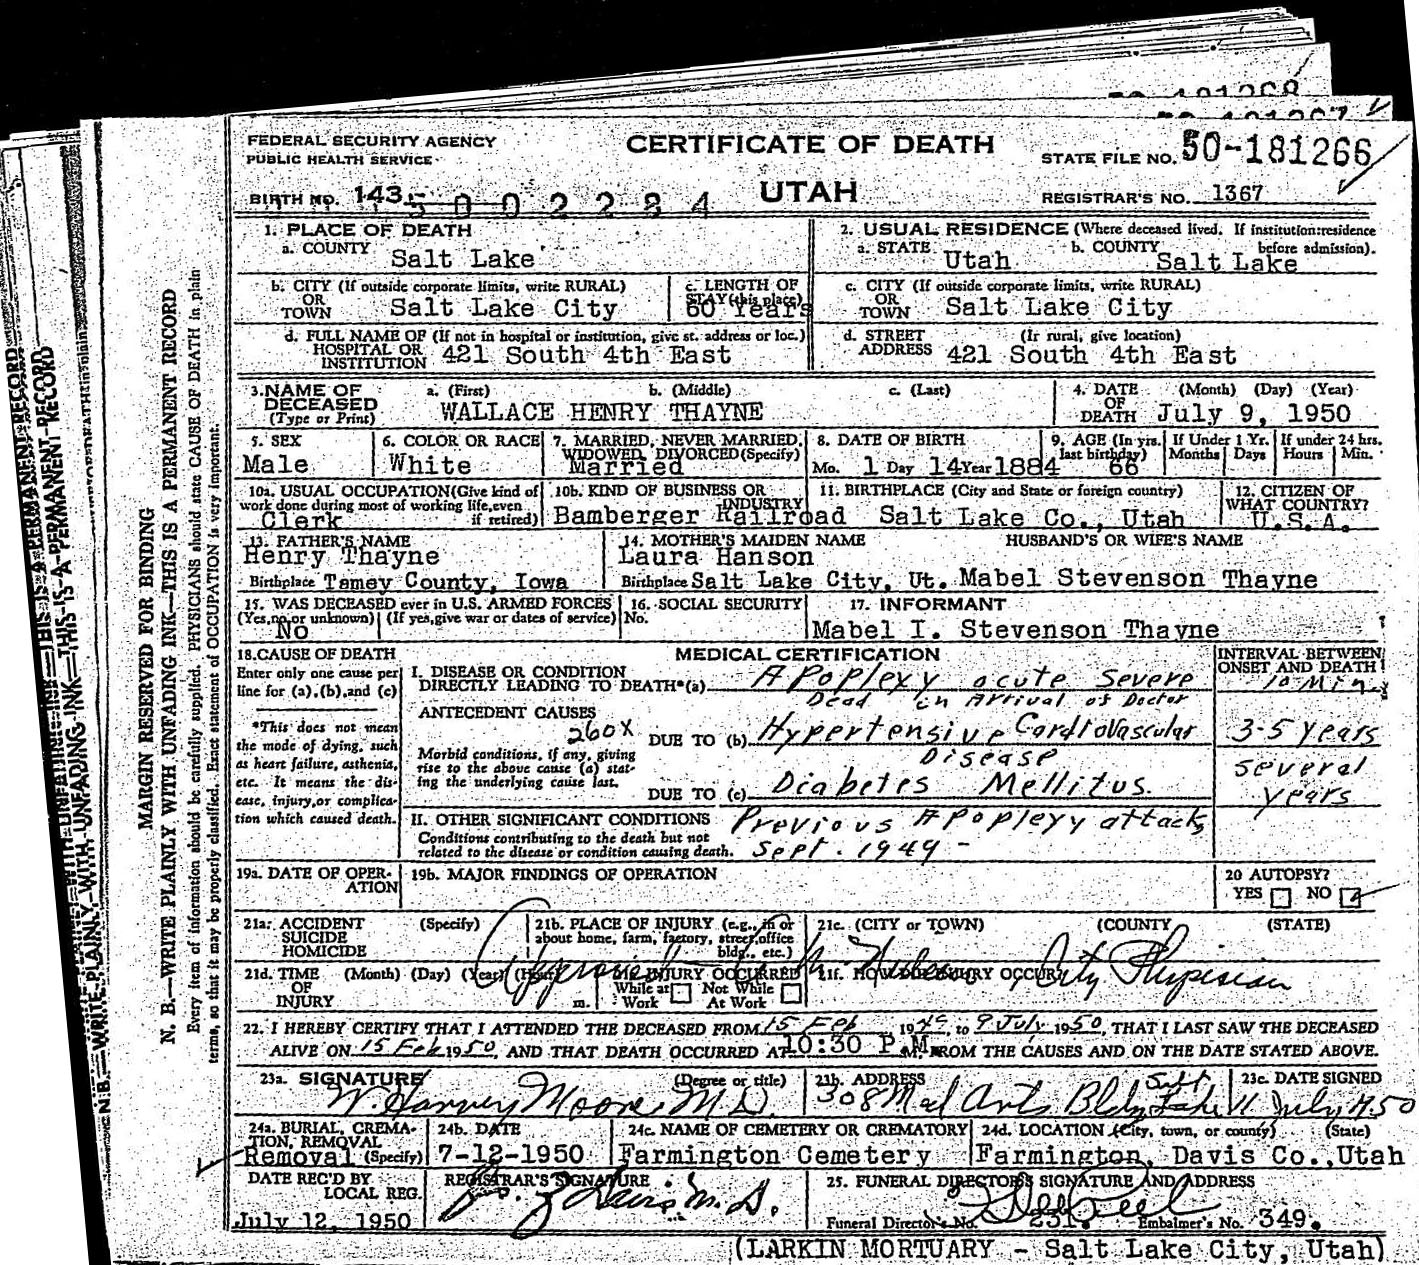 FEDERAL SECURITY AGENCY
PUBLIC HEALTH SERVICE
CERTIFICATE OF DEATH
STATE FILE NO. 50-181266
BIRTH NO. 143
5002284
UTAH
REGISTRAR'S NO. 1367
1. PLACE OF DEATH
a. COUNTY Salt Lake
2. USUAL RESIDENCE (Where deceased lived. If institution:residence before admission).
a. STATE Utah b. COUNTY Salt Lake
b. CITY (If outside corporate limits, write RURAL)
OR TOWN Salt Lake City
c. LENGTH OF STAY (this place) 60 Years
c. CITY (If outside corporate limits, write RURAL)
OR TOWN Salt Lake City
d. FULL NAME OF (If not in hospital or institution, give st. address or loc.)
HOSPITAL OR INSTITUTION 421 South 4th East
d. STREET ADDRESS (If rural, give location)
421 South 4th East
3. NAME OF DECEASED (Type or Print)
a. (First) b. (Middle) c. (Last)
WALLACE HENRY THAYNE
4. DATE OF DEATH (Month) (Day) (Year)
July 9, 1950
5. SEX
Male
6. COLOR OR RACE
White
7. MARRIED, NEVER MARRIED, WIDOWED, DIVORCED (Specify)
Married
8. DATE OF BIRTH
Mo. 1 Day 14 Year 1884
9. AGE (In yrs. last birthday) 66
If Under 1 Yr. Months Days
If under 24 hrs. Hours Min.
10a. USUAL OCCUPATION (Give kind of work done during most of working life, even if retired)
Clerk
10b. KIND OF BUSINESS OR INDUSTRY
Bamberger Railroad
11. BIRTHPLACE (City and State or foreign country)
Salt Lake Co., Utah
12. CITIZEN OF WHAT COUNTRY?
U.S.A.
13. FATHER'S NAME
Henry Thayne
Birthplace Tamey County, Iowa
14. MOTHER'S MAIDEN NAME
Laura Hanson
Birthplace Salt Lake City, Ut.
HUSBAND'S OR WIFE'S NAME
Mabel Stevenson Thayne
15. WAS DECEASED ever in U.S. ARMED FORCES
(Yes, no, or unknown) (If yes, give war or dates of service)
No
16. SOCIAL SECURITY No.
17. INFORMANT
Mabel I. Stevenson Thayne
18. CAUSE OF DEATH
Enter only one cause per line for (a), (b), and (c)
*This does not mean the mode of dying, such as heart failure, asthenia, etc. It means the disease, injury, or complication which caused death.
MEDICAL CERTIFICATION
INTERVAL BETWEEN ONSET AND DEATH
I. DISEASE OR CONDITION DIRECTLY LEADING TO DEATH*(a) Apoplexy acute severe
10 Min.
Dead on Arrival of Doctor
ANTECEDENT CAUSES
260X
Morbid conditions, if any, giving rise to the above cause (a) stating the underlying cause last.
DUE TO (b) Hypertensive Cardiovascular Disease
3-5 years
DUE TO (c) Diabetes Mellitus.
several years
II. OTHER SIGNIFICANT CONDITIONS
Conditions contributing to the death but not related to the disease or condition causing death.
Previous Apoplexy attack
Sept. 1949 -
19a. DATE OF OPERATION
19b. MAJOR FINDINGS OF OPERATION
20 AUTOPSY?
YES NO
21a. ACCIDENT SUICIDE HOMICIDE (Specify)
21b. PLACE OF INJURY (e.g., in or about home, farm, factory, street, office bldg., etc.)
21c. (CITY or TOWN) (COUNTY) (STATE)
21d. TIME OF INJURY (Month) (Day) (Year) (Hour) m.
INJURY OCCURRED
While at Work Not While At Work
21f. HOW DID INJURY OCCUR
City Physician
22. I HEREBY CERTIFY THAT I ATTENDED THE DECEASED FROM 15 Feb 19 to 9 July 1950, THAT I LAST SAW THE DECEASED
ALIVE ON 15 Feb 1950, AND THAT DEATH OCCURRED AT 10:30 P.M. FROM THE CAUSES AND ON THE DATE STATED ABOVE.
23a. SIGNATURE (Degree or title)
W. Harvey Moore M.D.
23b. ADDRESS
308 Med Arts Bldg Salt Lake
23c. DATE SIGNED
11 July 1950
24a. BURIAL, CREMATION, REMOVAL (Specify)
Removal
24b. DATE
7-12-1950
24c. NAME OF CEMETERY OR CREMATORY
Farmington Cemetery
24d. LOCATION (City, town, or county) (State)
Farmington, Davis Co., Utah
DATE REC'D BY LOCAL REG.
July 12, 1950
REGISTRAR'S SIGNATURE
M.D.
25. FUNERAL DIRECTOR'S SIGNATURE AND ADDRESS
Funeral Director's No. 231. Embalmer's No. 349.
(LARKIN MORTUARY - Salt Lake City, Utah)
MARGIN RESERVED FOR BINDING
N. B.—WRITE PLAINLY WITH UNFADING INK—THIS IS A PERMANENT RECORD
Every item of information should be carefully supplied. PHYSICIANS should state CAUSE OF DEATH in plain
terms, so that it may be properly classified. Exact statement of OCCUPATION is very important.